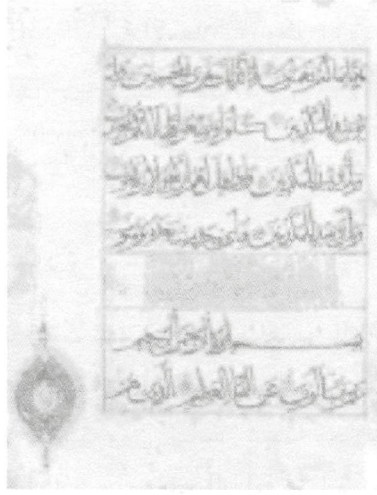 هنيئا بما كنتم تعملون إنا كذلك نجزي المحسنين ويل
يومئذ للمكذبين كلوا وتمتعوا قليلا إنكم مجرمون
ويل يومئذ للمكذبين وإذا قيل لهم اركعوا لا يركعون
ويل يومئذ للمكذبين فبأي حديث بعده يؤمنون
بسم الله الرحمن الرحيم
عم يتساءلون عن النبإ العظيم الذي هم